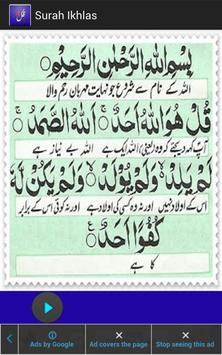 Surah Ikhlas
بِسْمِ اللّٰهِ الرَّحْمٰنِ الرَّحِيْمِ
اللہ کے نام سے شروع جو نہایت مہربان رحم والا
قُلْ هُوَ اللّٰهُ اَحَدٌ ۚ اَللّٰهُ الصَّمَدُ ۚ
آپ کہہ دیجئے کہ وہ (یعنی) اللہ ایک ہے اللہ بے نیاز ہے
لَمْ يَلِدْ ۙ وَلَمْ يُوْلَدْ ۙ وَلَمْ يَكُنْ لَّهٗ
اس کے اولاد نہیں اور نہ وہ کسی کی اولاد ہے اور نہ کوئی اس کے برابر
كُفُوًا اَحَدٌ
کا ہے
Ads by Google
Ad covers the page
Stop seeing this ad